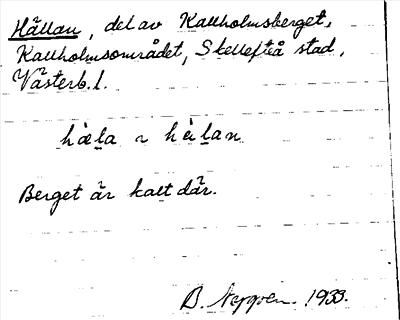 Hällan, del av Kallholmsberget,
Kallholmsområdet, Skellefteå stad,
Västerb. l.
hæ̀l̯a ~ hèl̯an
Berget är kalt där.
B. 1933.